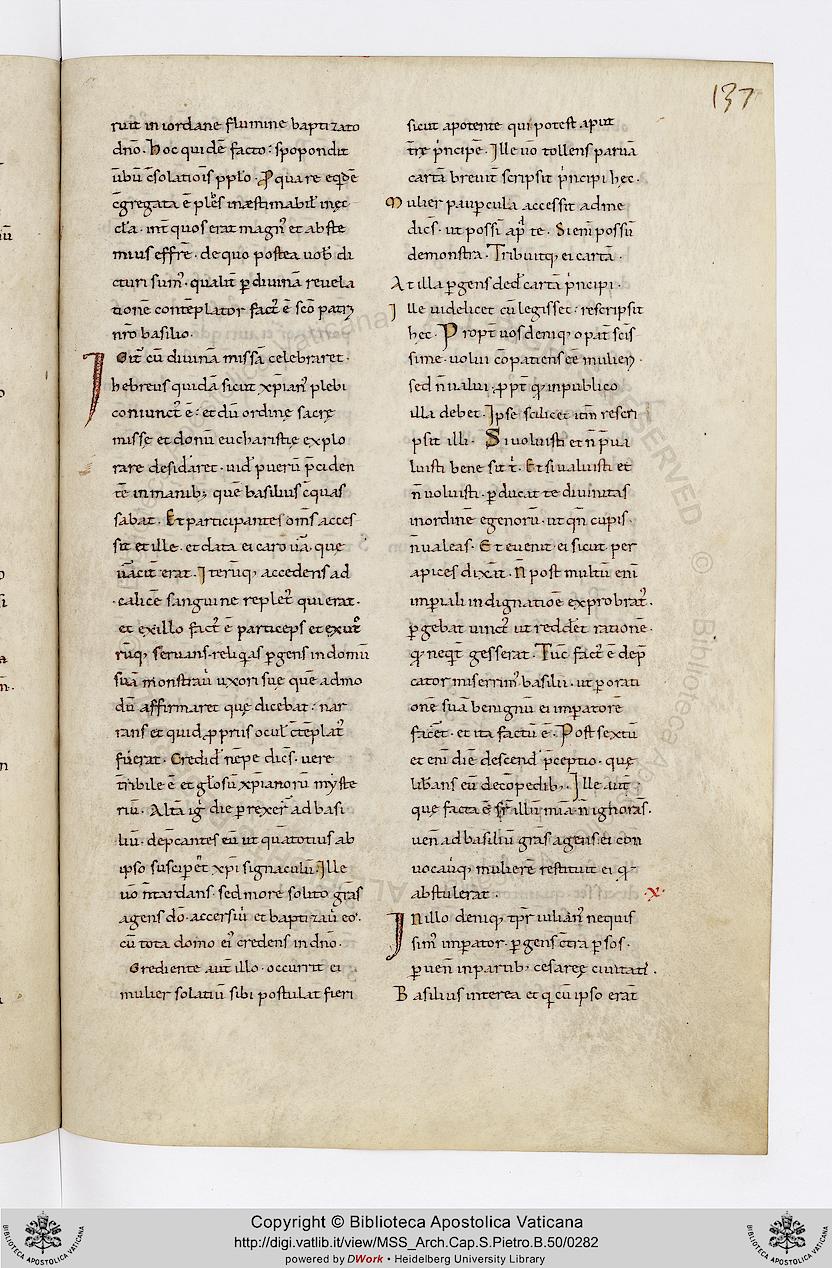 137
runt in iordane flumine baptizato
dño. Hoc quidē facto: spopondit
c̄gregata ē plēs inęstimabił inęc
cła. int̄ quos erat magn᾽ et abste
mius effrē. de quo postea uob᾽ di
cturi sum᾽. qualit̄ p̱ diuinā reuela
tionē contēplator fact᾽ ē sc̄o patri
nr̄o basilio.
cū diuinā missā celebraret.
hebreus quidā sicut xp̄ian᾽ plebi
coniunct᾽ ē: et dū ordinę sacrę
missę et donū eucharistię explo
rare desidaret. uid᾽ puerū p̄ciden
tē in manib; quē basilius c̄quas
sabat. Et participantes om̄s acces
sit et ille. et data ei caro uā que
erat. Iterūq, accedens ad
calicē sanguine replet᾽ qui erat.
et ex illo fact᾽ ē particeps et
rūq, seruans reliqas p̱gens in domū
suā monstrau̇ uxori suę que ad mo
dū affirmaret quę dicebat: nar
rans et quid p̱priis ocuł c̄tēplat᾽
fuerat. Credid᾽ nēpe dic̄s. uere
tr̄ribile ē et głosū xp̄ianorū myste
riū. Altā ig᾽ die p̱rexer̄ ad basi
liū. dep̄cantes eū ut quātotius ab
ipso susciperēt xp̄i signaculū. Ille
uō ñ tardans. sed more solito grās
agens dō. accersiu̇ et baptizau̇ eō.
cū tota domo ei᾽ credens in dño.
Crediente aut̄ illo. occurrit ei
mulier solatiū sibi postulat fieri
sicut a potente qui potest aput
tr̄ę p̄ncipe. Ille uō tollens paruā
cartā breuit̄ scripsit p̄ncipi hęc.
Mulier paup̱cula accessit ad me
dic̄s. ut possi᾽ ap᾽ te. Si eni᾽ possū
demonstra. Tribuitq, ei cartā.
At illa p̱gens ded᾽ cartā p̄ncipi.
Ille uidelicet cū legisset. rescripsit
hęc. Propt̄ uos deniq, o pat̄ sc̄is
sime. uolui cōpatiens eē mulieri.
sed ñ ualui. p̱pt̄ q᾽ in publico
illa debet. Ipse scilicet itm̄ rescri
psit illi. Si uoluisti et ñ p̄ua
luisti bene sit t᾽. Et si ualuisti et
ñ uoluisti. p̱ducat te diuinitas
in ordinē egenorū. ut qñ cupis.
ñ ualeas. Et euenit ei sicut per
apices dixāt. ñ post multū eni᾽
imp̱iali indignatiōe exprobrat᾽.
p̱gebat uinct᾽ ut redderet rationē.
q᾽ neqt᾽ gesserat. Tūc fact᾽ ē dep̄
cator miserrim᾽ basilii. ut p̱ orati
onē suā benignū ei imp̱atorē
facēt. et ita factū ē. Post sextū
et eni᾽ diē descend᾽ p̄ceptio. quę
libans eū de cōpedib,. Ille uit̄
que facta ē sup̱ illū mi᾽a ñ ignorās.
uēn ad basiliū grās agens: ei con
uocauitq, mulierē restituit ei q᾽
abstulerat. .X.
In illo deniq, tp̄r iulian᾽ nequis
sim᾽ imp̱ator. p̱gens c̄tra p̱sos.
p̱uēn in partib, cesaręę ciuitati᾽.
Basilius interea et q᾽ cū ipso erat̄
Copyright © Biblioteca Apostolica Vaticana
http://digi.vatlib.it/view/MSS_Arch.Cap.S.Pietro.B.50/0282
powered by DWork • Heidelberg University Library